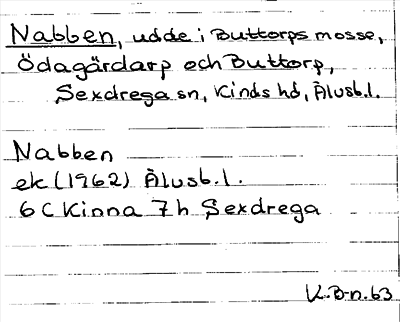 Nabben, udde i Buttorps mosse,
Ödagärdarp och Buttorp,
Sexdrega sn, Kinds hd, Älvsb.l.
Nabben
ek (1962) Älvsb.l.
6 C Kinna 7 h Sexdrega
K.B-n. 63